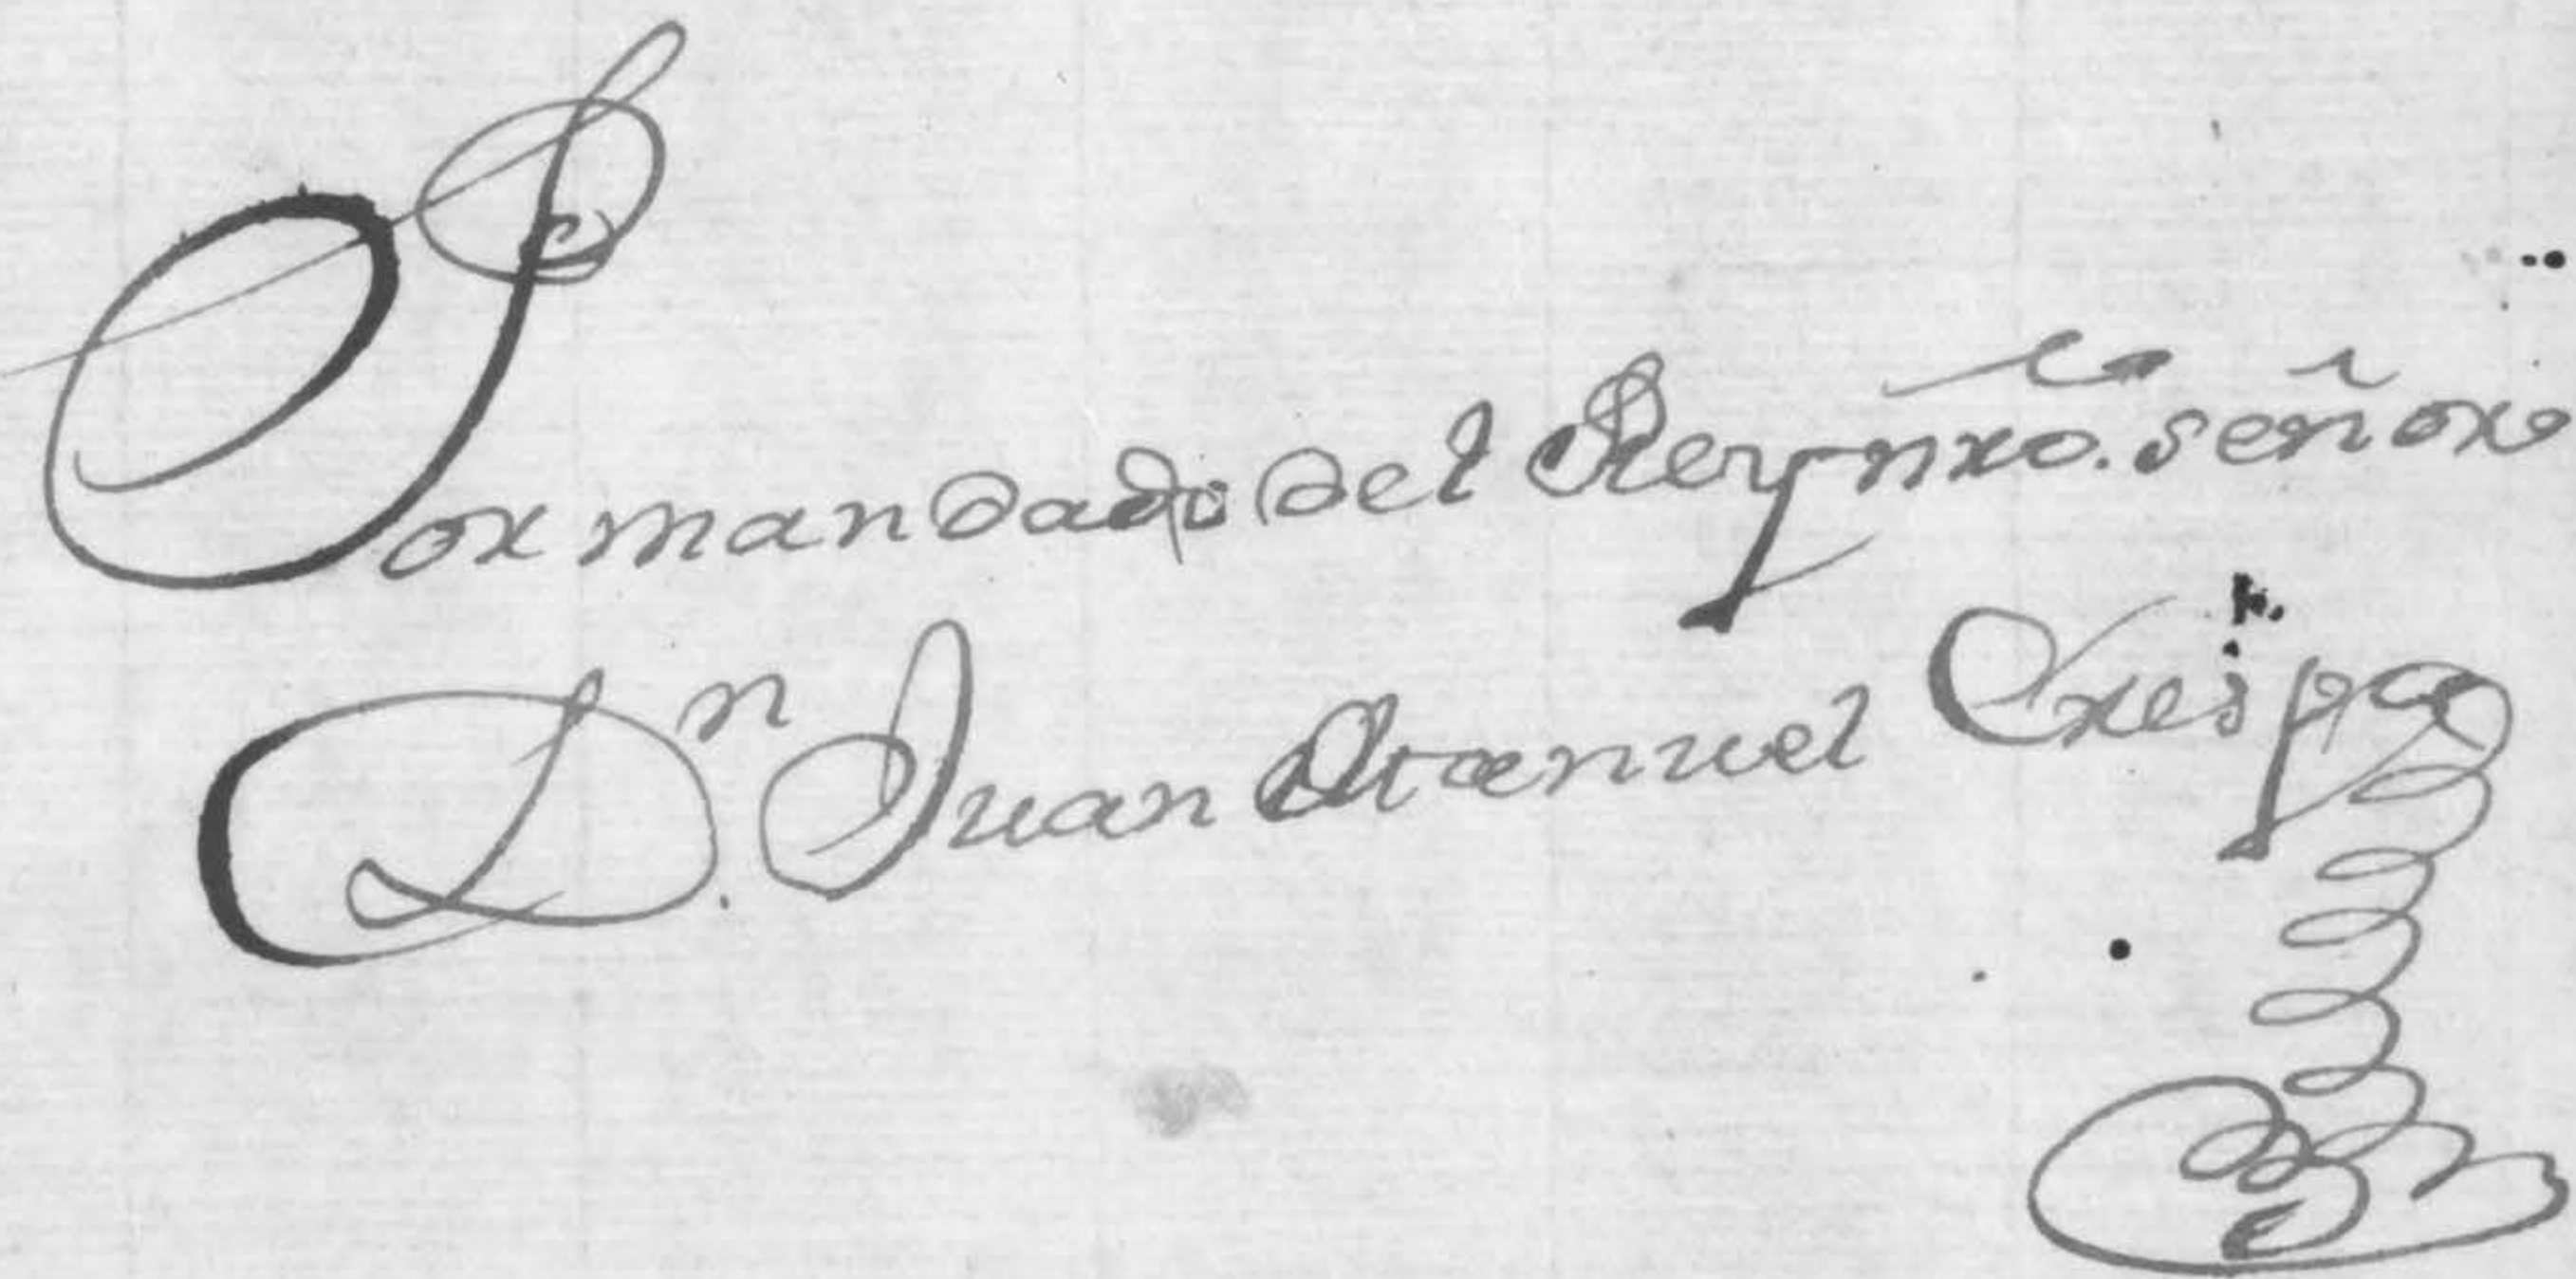 Por mandado del Rey nro. señor
Dn. Juan Manuel Crespo